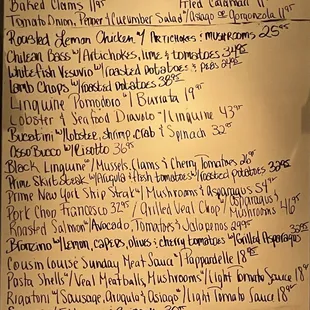 Baked Clams 11⁹⁵ Fried Calamari 11
Tomato, Onion, Pepper & Cucumber Salad w/ Asiago or Gorgonzola 11⁹⁵
Roasted Lemon Chicken w/ Artichokes & mushrooms 25⁹⁵
Chilean Bass w/ Artichokes, lime & tomatoes 34⁹⁵
Whitefish Vesuvio w/ roasted potatoes & peas 24⁹⁵
Lamb Chops w/ roasted potatoes 38⁹⁵
Linguine Pomodoro w/ Burrata 19⁹⁵
Lobster & Seafood Diavolo w/ linguine 43⁹⁵
Bucatini w/ lobster, shrimp, crab & Spinach 32⁹⁵
Osso Bucco w/ Risotto 36⁹⁵
Black Linguine w/ Mussels, Clams & Cherry Tomatoes 26⁹⁵
Prime Skirt Steak w/ Arugula & fresh tomatoes w/ roasted potatoes 32⁹⁵
Prime New York Strip Steak w/ Mushrooms & Asparagus 54⁹⁵
Pork Chop Francesco 32⁹⁵ / Grilled Veal Chop w/ Asparagus & Mushrooms 46⁹⁵
Roasted Salmon w/ Avocado, Tomatoes & Jalapenos 29⁹⁵
Branzino w/ Lemon, capers, olives & cherry tomatoes w/ Grilled Asparagus
Cousin Louise Sunday Meat Sauce w/ Pappardelle 18⁹⁵
Pasta Shells w/ Veal Meatballs, Mushrooms w/ light Tomato Sauce 18⁹⁵
Rigatoni w/ Sausage, Arugula & Asiago w/ light Tomato Sauce 18⁹⁵